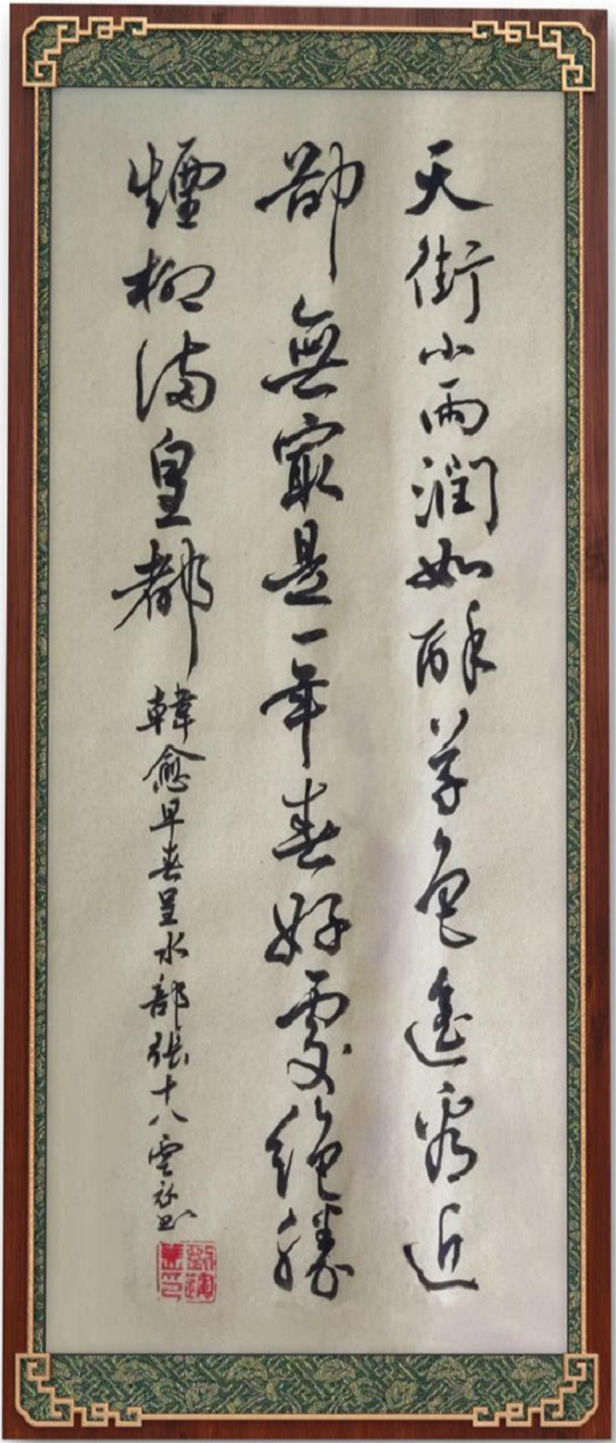 天街小雨潤如酥草色遙看近
卻無最是一年春好處絕勝
煙柳滿皇都
韓愈早春呈水部張十八雲